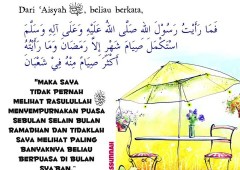 Dari 'Aisyah ﷺ, beliau berkata,
فَمَا رَأَيْتُ رَسُولَ اللَّهِ صَلَّى اللَّهُ عَلَيْهِ وَعَلَى آلِهِ وَسَلَّمَ
اسْتَكْمَلَ صِيَامَ شَهْرٍ إِلَّا رَمَضَانَ وَمَا رَأَيْتُهُ
أَكْثَرَ صِيَامًا مِنْهُ فِي شَعْبَانَ
"MAKA SAYA
TIDAK PERNAH
MELIHAT RASULULLAH ﷺ
MENYEMPURNAKAN PUASA
SEBULAN SELAIN BULAN
RAMADHAN DAN TIDAKLAH
SAYA MELIHAT PALING
BANYAKNYA BELIAU
BERPUASA DI BULAN
SYA'BAN."